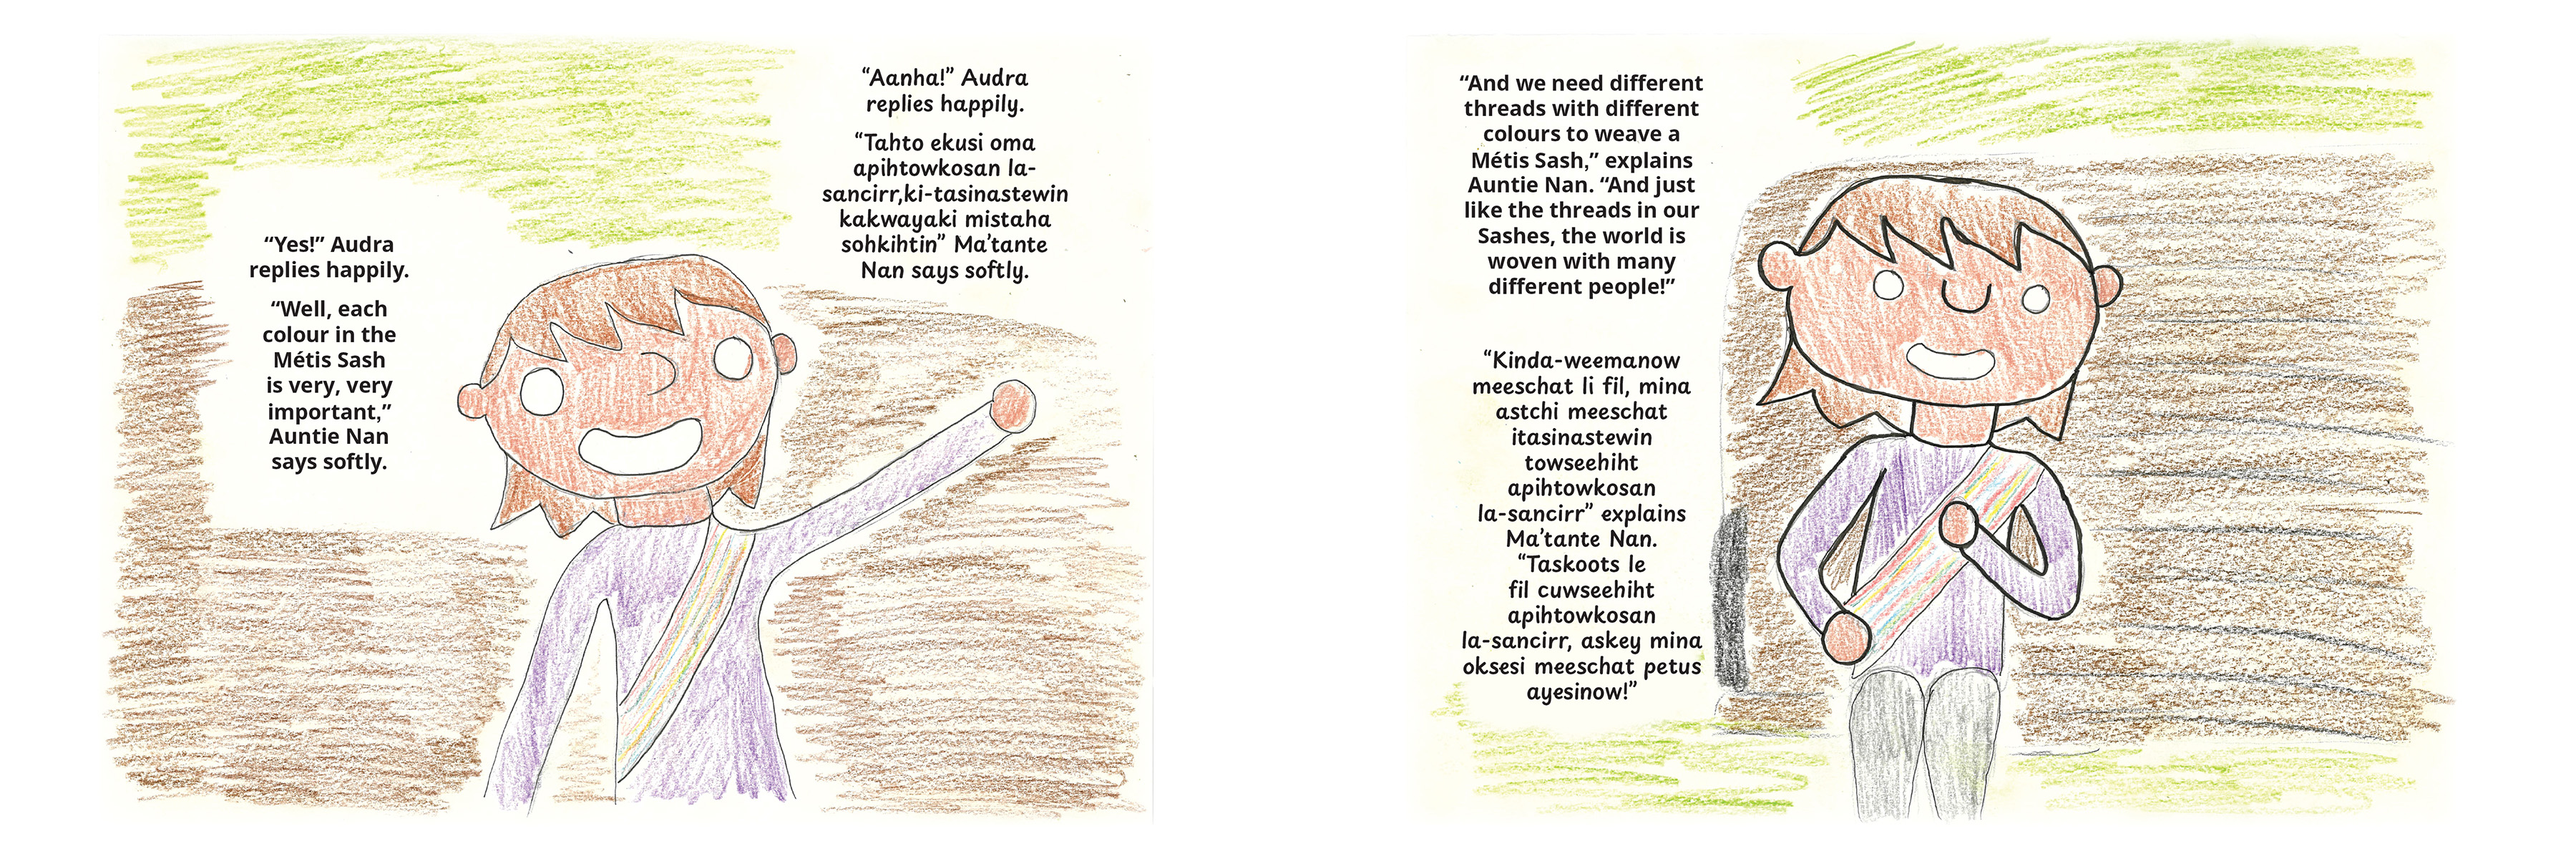 “Yes!” Audra
replies happily.
“Well, each
colour in the
Métis Sash
is very, very
important,”
Auntie Nan
says softly.
“Aanha!” Audra
replies happily.
“Tahto ekusi oma
apihtowkosan la-
sancirr,ki-tasinastewin
kakwayaki mistaha
sohkihtin” Ma’tante
Nan says softly.
“And we need different
threads with different
colours to weave a
Métis Sash,” explains
Auntie Nan. “And just
like the threads in our
Sashes, the world is
woven with many
different people!”
“Kinda-weemanow
meeschat li fil, mina
astchi meeschat
itasinastewin
towseehiht
apihtowkosan
la-sancirr” explains
Ma’tante Nan.
“Taskoots le
fil cuwseehiht
apihtowkosan
la-sancirr, askey mina
oksesi meeschat petus
ayesinow!”